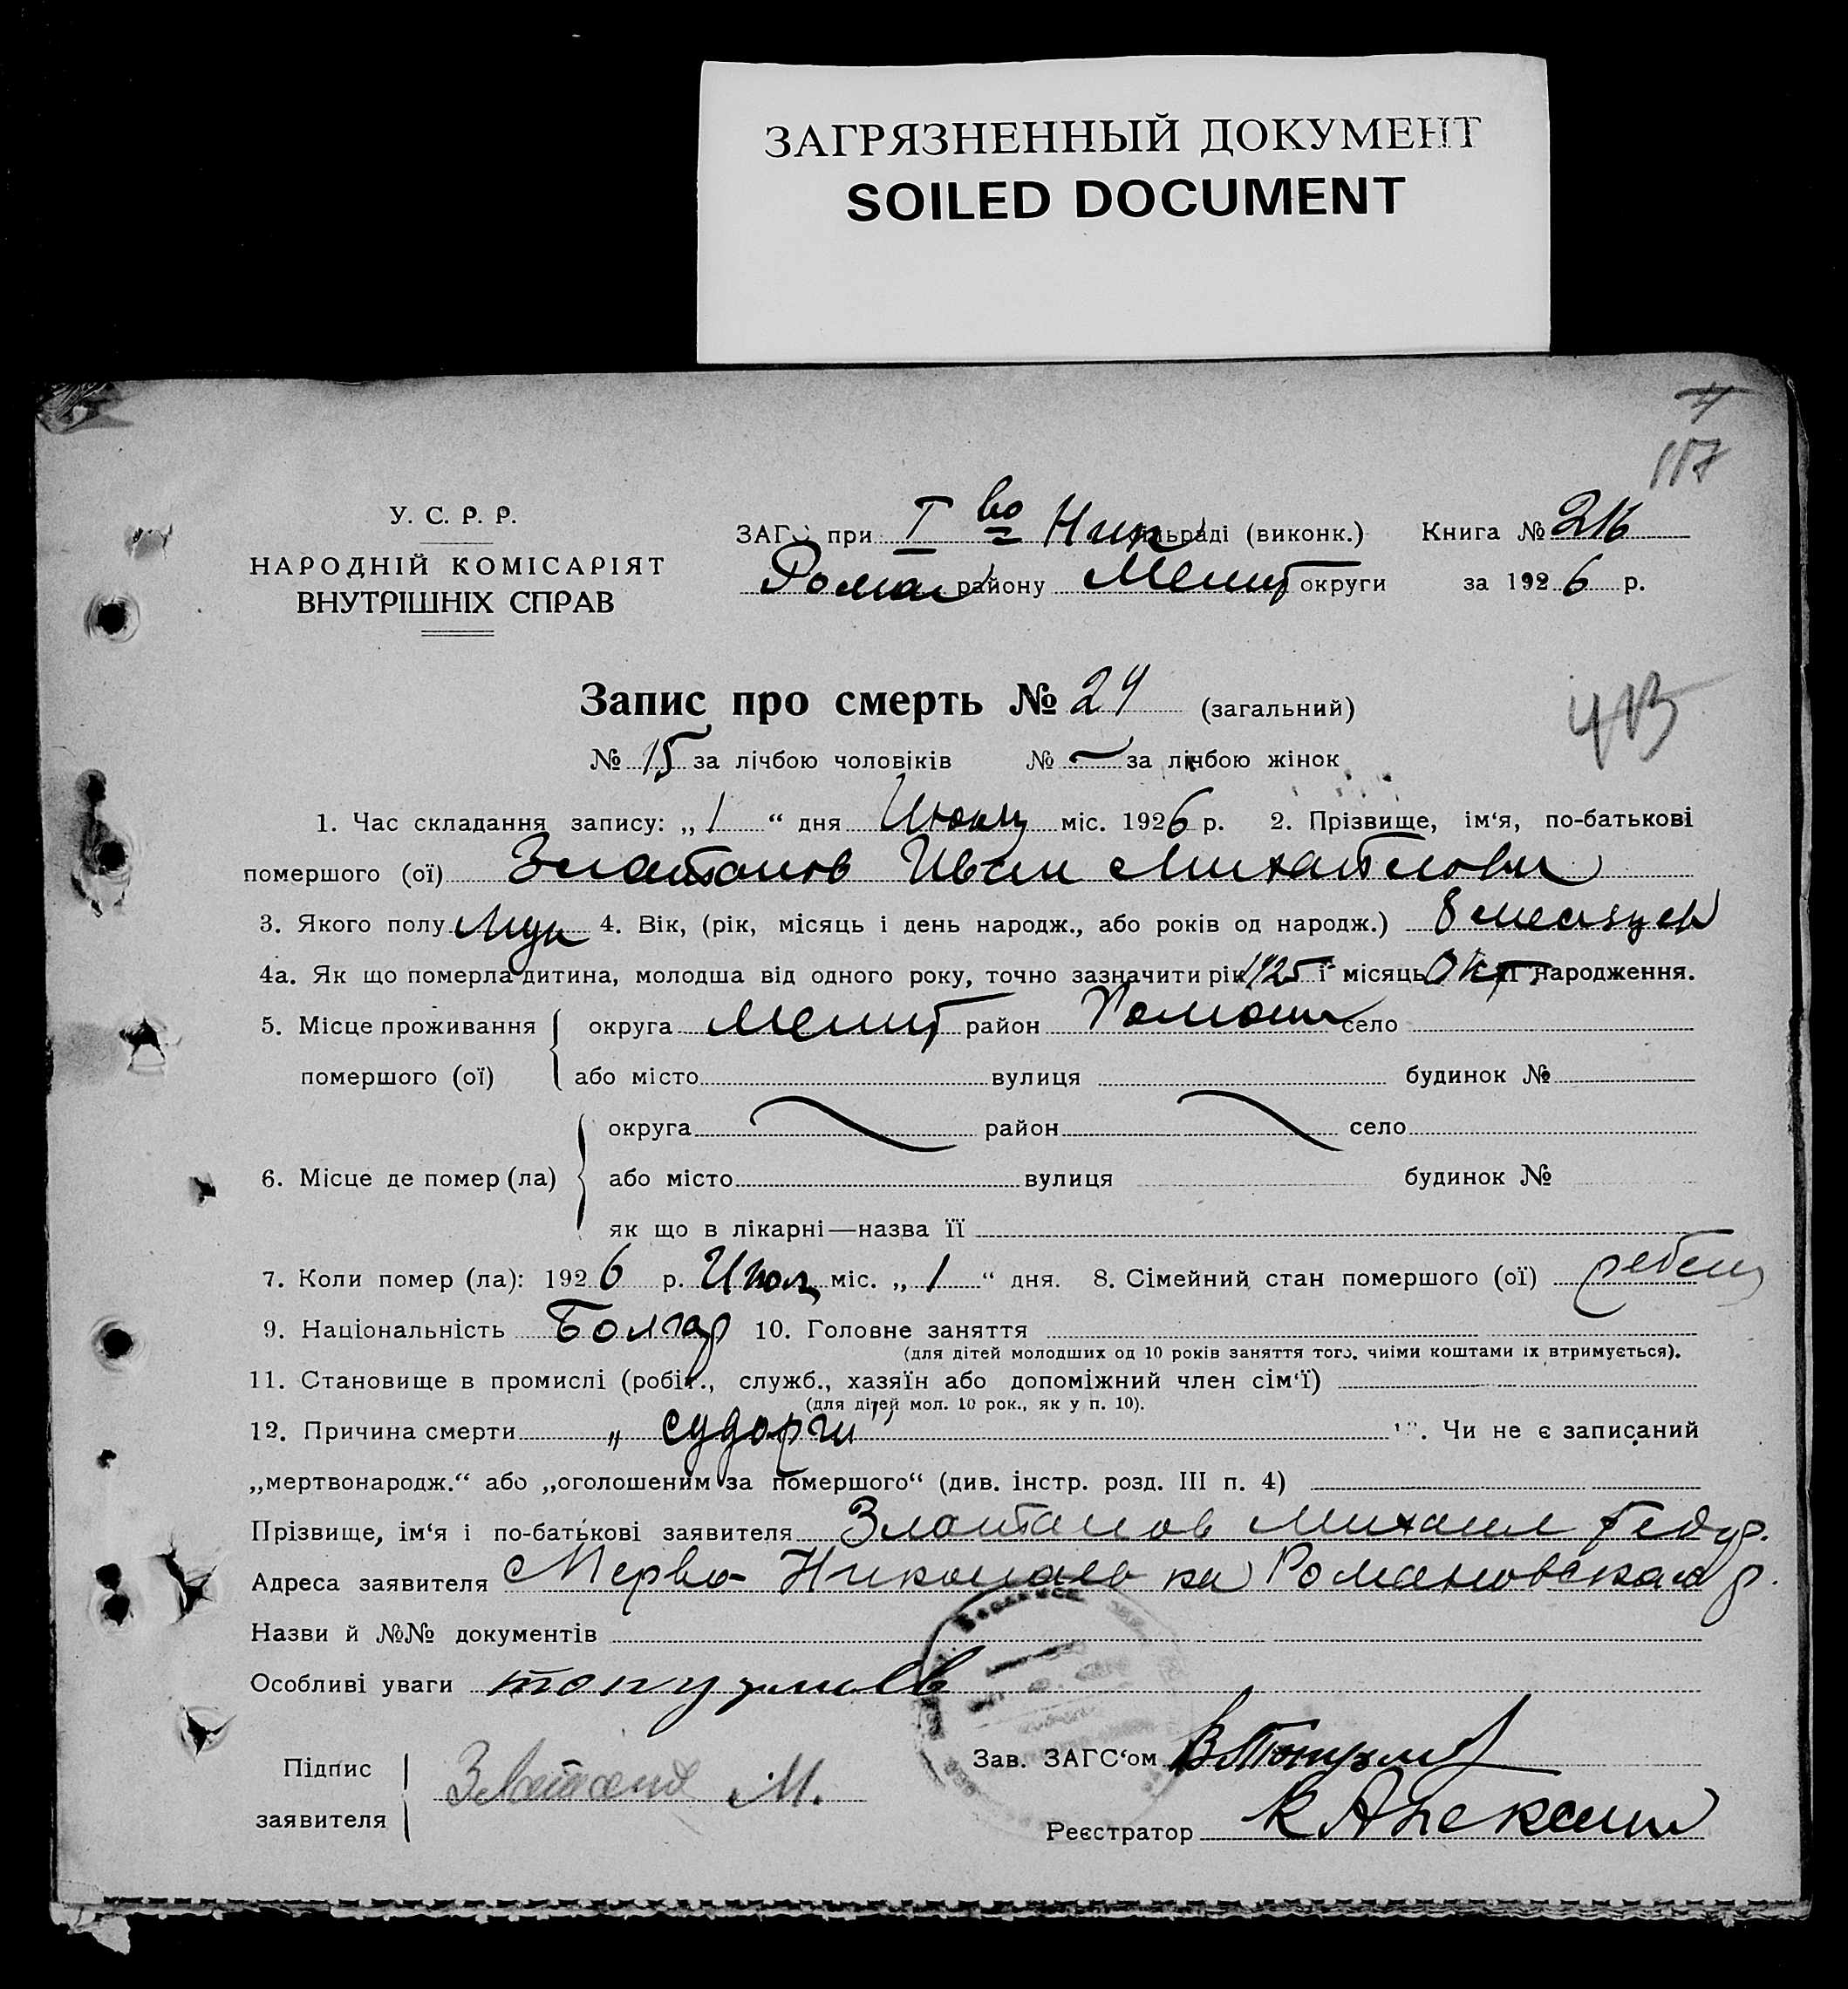 ЗАГРЯЗНЕННЫЙ ДОКУМЕНТ
SOILED DOCUMENT
117
У. С. Р. Р.
НАРОДНІЙ КОМІСАРІЯТ
ВНУТРІШНІХ СПРАВ
ЗАГС при I во Ник сільраді (виконк.) Книга № 216
Роман району Мелит округи за 1926 р.
Запис про смерть № 24 (загальний)
№ 15 за лічбою чоловіків № — за лічбою жінок
1. Час складання запису: „1“ дня міс. 1926 р. 2. Прізвище, ім‘я, по-батькові
помершого (ої) Златанов Иван Михайлович
3. Якого полу Муж 4. Вік, (рік, місяць і день народж., або років од народж.) 8 месяцев
4а. Як що померла дитина, молодша від одного року, точно зазначити рік 1925 і місяць Окт народження.
5. Місце проживання округа Мелит район Романов село
помершого (ої) або місто вулиця будинок №
округа район село
6. Місце де помер (ла) або місто вулиця будинок №
як що в лікарні—назва її
7. Коли помер (ла): 1926 р. міс. „1“ дня. 8. Сімейний стан помершого (ої)
9. Національність Болгар 10. Головне заняття
(для дітей молодших од 10 років заняття того, чиїми коштами їх втримується).
11. Становище в промислі (робіт., служб., хазяїн або допоміжний член сім‘ї)
(для дітей мол. 10 рок., як у п. 10).
12. Причина смерти „судорги” 13. Чи не є записаний
„мертвонародж.“ або „оголошеним за помершого“ (див. інстр. розд. III п. 4)
Прізвище, ім‘я і по-батькові заявителя Златанов Михаил Федор.
Адреса заявителя Перво Николаевка Романовская р.
Назви й №№ документів
Особливі уваги
Підпис
заявителя
Златанов М.
Зав. ЗАГС‘ом
Реєстратор